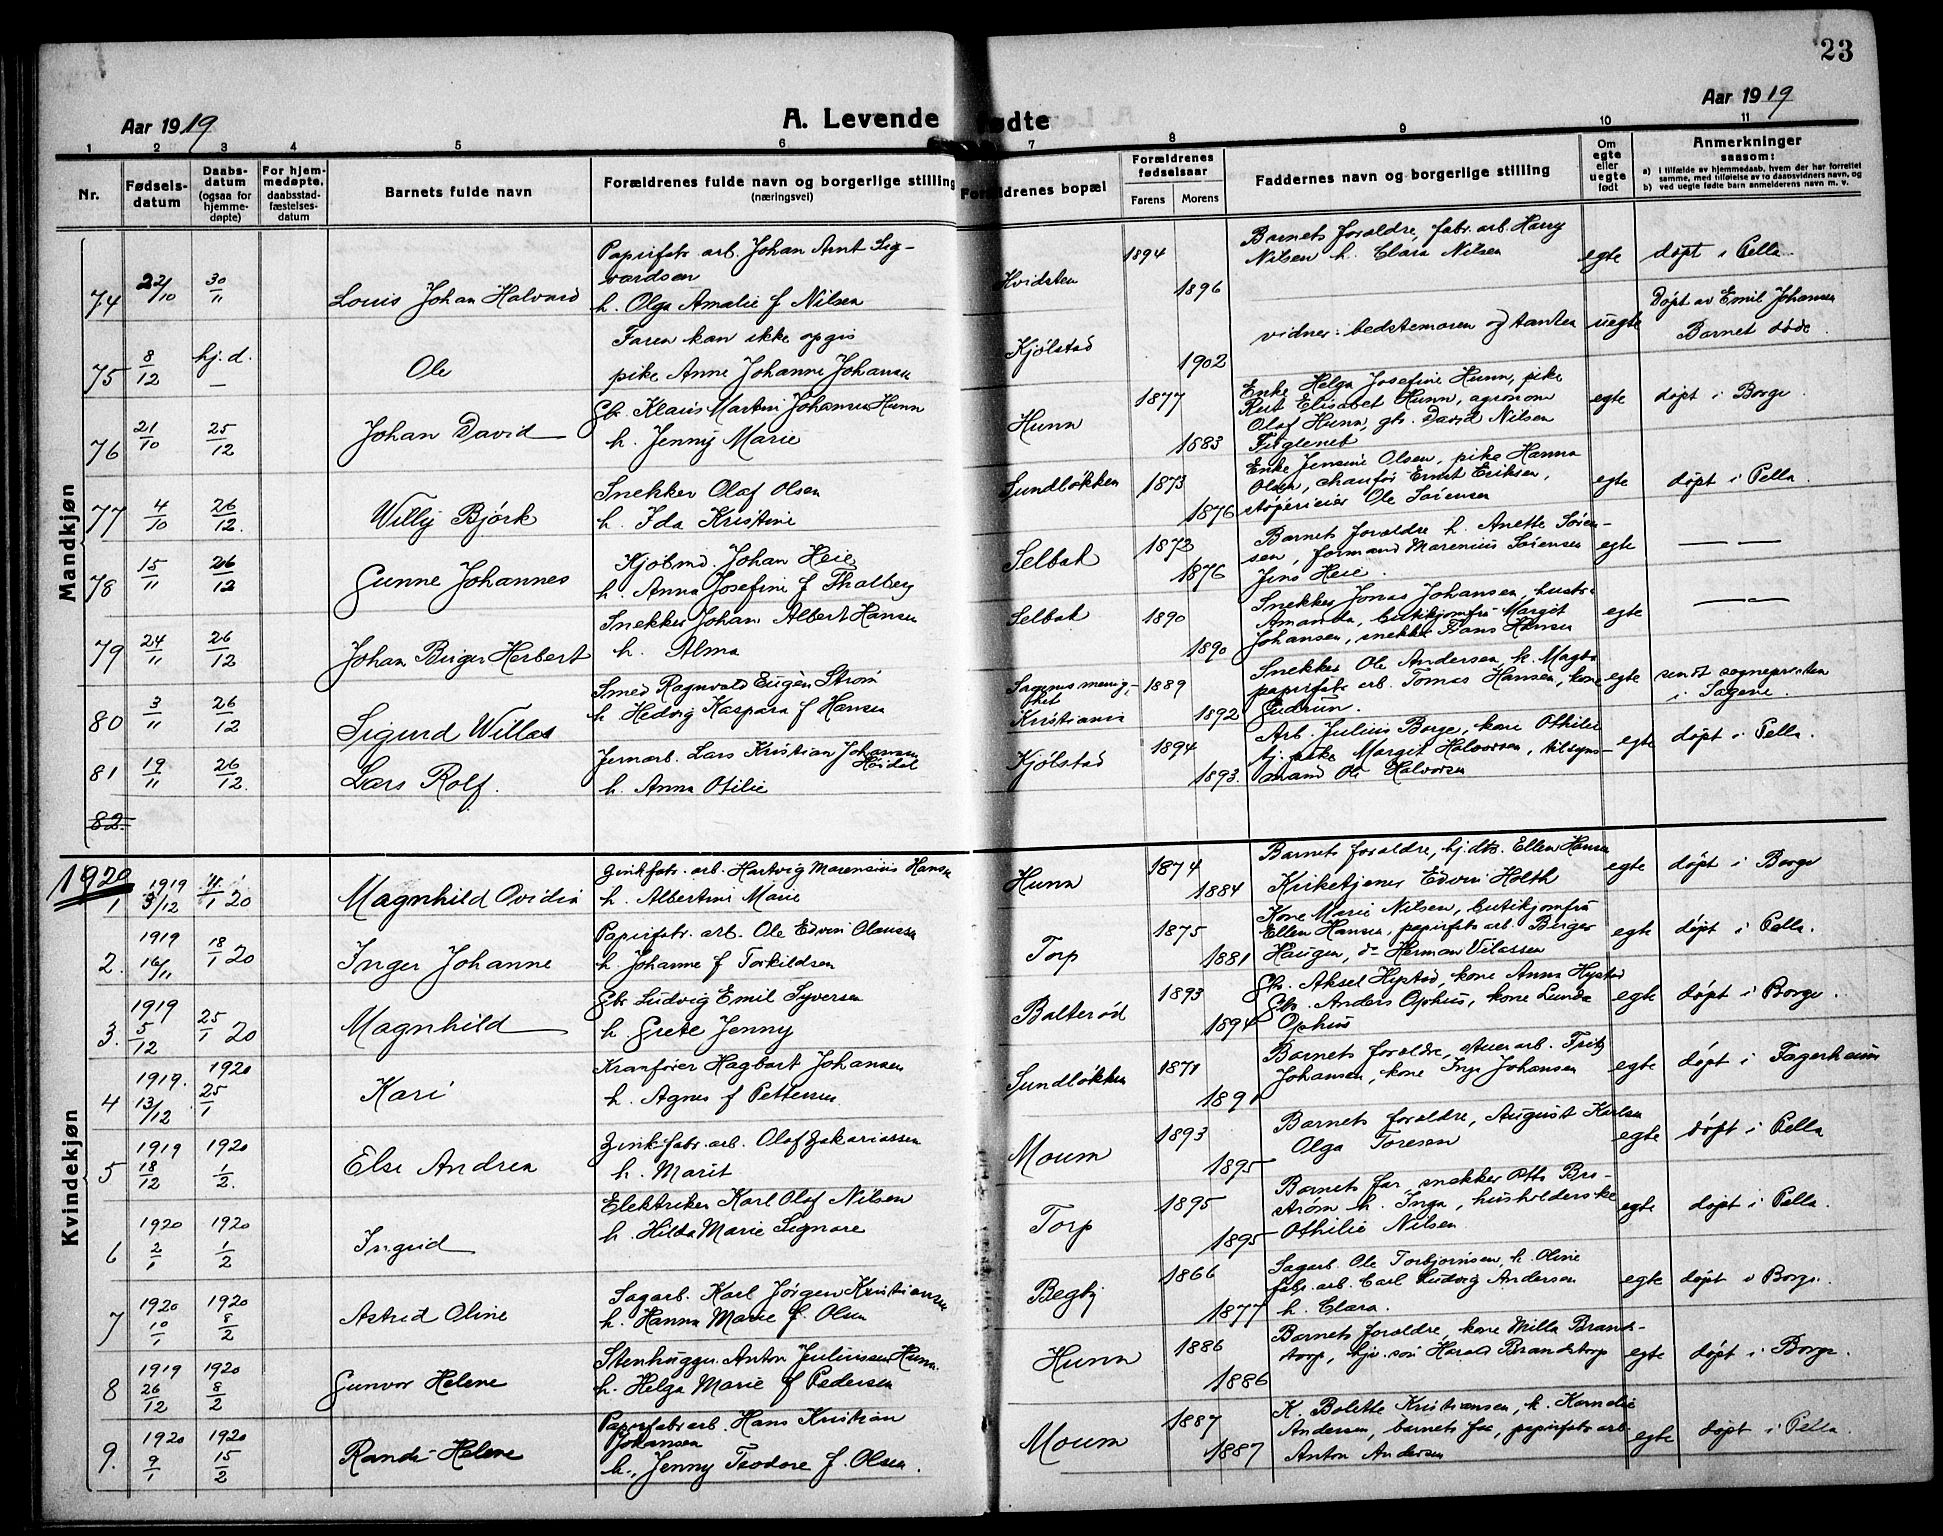 23
Aar 1919
A. Levende fødte
Aar 1919
1 2 3 4 5 6 7 8 9 10 11
Nr.
Fødsels-
datum
Daabs-
datum
(ogsaa for
hjemme-
døpte)
For hjem-
medøpte,
daabsstad-
fæstelses-
datum
Barnets fulde navn
Forældrenes fulde navn og borgerlige stilling
(næringsvei)
Forældrenes bopæl
Forældrenes
fødselsaar
Farens Morens
Faddernes navn og borgerlige stilling
Om
egte
eller
uegte
født
Anmerkninger
saasom:
a) i tilfælde av hjemmedaab, hvem der har forrettet
samme, med tilføielse av to daabsvidners navn, og
b) ved uegte fødte barn anmelderens navn m. v.
Mandkjøn
74 22/10 30/11 Louis Johan Halvard
Papirfabr. arb. Johan Arnt Sig-
vardsen
h. Olga Amalie f Nilsen
Hvidsten 1894 1896
Barnets foraldre, fabr. arb. Harry
Nilsen h. Clara Nilsen
egte døpt i Pella.
75 8/12 hj. d. — Ole
Faren kan ikke opgis
pike Anne Johanne Johansen
Kjølstad 1902
vidner: bedstemoren og tanten
uegte Døpt av Emil Johansen
Barnet døde.
76 21/10 25/12 Johan David
Gbr. Klaus Martin Johansen Hunn
h. Jenny Marie
Hunn 1877 1883
Enke Helga Josefine Hunn, pike
Rut Elisabet Hunn, agronom
Olaf Hunn, gb. David Nilsen
Fuglenet
egte døpt i Borge.
77 4/10 26/12. Willy Björk
Snekker Olaf Olsen
h. Ida Kristine
Sundløkken 1873 1876
Enke Jensine Olsen, pike Hanna
Olsen, chauför Ernst Eriksen,
støperieier Ole Sørensen
egte døpt i Pella.
78 15/11 26/12 Gunne Johannes
Kjöbmd. Johan Heie
h. Anna Josefine f Thalberg
Selbak 1873 1876
Barnets foraldre h. Anette Sören-
sen, formand Marenius Sørensen
Jens Heie.
egte — —
79 24/11 26/12 Johan Birger Herbert
Snekker Johan Albert Hansen
h. Alma
Selbak 1890 1890
Snekker Jonas Johansen, hustr.
Amanda, butikjomfru Margit
Johansen, snekker Frans Hansen
egte — " —
80 3/11 26/12 Sigurd Willas
Smed Ragnvald Eugèn Strøm
h Hedvig Kaspara f Hansen
Sagenes menig-
het
Kristiania 1889 1892
Snekker Ole Andersen, h. Magda
papirfabr. arb. Tomas Hansen, kone
Gudrun.
egte sendt sognepresten
i Sagene.
81 19/11 26/12. Lars Rolf.
Jernarb. Lars Kristian Johansen
Høidal
h. Anna Otilie
Kjølstad 1894 1893.
Arb. Julius Borge, kone Othilie
tj. pike Margit Halvorsen, tilsyns-
mand Ole Halvorsen
egte døpt i Pella.
82.
1920
Kvindekjøn
1 1919 3/12 11/1 20 Magnhild Ovidia
Zinkfabr. arb. Hartvig Marensius Hansen
h. Albertine Marie
Hunn 1874 1884
Barnets foraldre, hj. dtr. Ellen Hansen
Kirketjener Edvin Holth
egte døpt i Borge
2. 1919 16/11 18/1 20 Inger Johanne
Papirfabr. arb. Ole Edvin Olaussen
h. Johanne f Torkildsen
Torp 1875 1881
Kone Marie Nilsen, butikjomfru
Ellen Hansen, papirfabr arb. Birger
Haugen, do Herman Vilassen
egte døpt i Pella.
3. 1919 5/12 25/1 20 Magnhild
Gbr Ludvig Emil Syversen
h. Grete Jenny
Balterød 1893 1894
Gbr. Aksel Hystad, kone Anna Hystad
Gbr. Anders Ophus, kone Lunda
Ophus
egte døpt i Borge.
4 1919. 13/12 1920 25/1 Kari
Kranfører Hagbart Johansen
h. Agnes f Pettersen
Sundløkken 1871 1891
Barnets foraldre, stuerarb. Fritz
Johansen, kone Inga Johansen
egte døpt i Fagerheim
5 1919 18/12 1920 1/2. Else Andrea
Zinkfabr. arb. Olaf Zakariassen
h. Marit
Moum 1893 1895
Barnets foraldre, August Karlsen
Olga Toresen
egte døpt i Pella
6 1920 2/1 1920 1/2 Ingrid
Elektriker Karl Olaf Nilsen
h. Hilda Marie Signore
Torp 1895 1895
Barnets far, snekker Otto Bre-
strøm h. Inga, husholderske
Othilie Nilsen.
egte døpt i Pella.
7 1920 10/1 1920 8/2 Astrid Oline
Sagarb. Karl Jørgen Kristiansen
h. Hanna Marie f. Olsen
Begby 1866 1877
Sagarb. Ole Torbjørnsen, h. Oline
fabr. arb. Carl Ludvig Andersen
h. Clara.
egte døpt i Borge.
8 1919 26/12 1920 8/2 Gunvor Helene
Stenhugger. Anton Juliussen Hunn.
h. Helga Marie f Pedersen
Hunn 1886 1886
Barnets foraldre, kone Milla Brands-
torp, hjv. søn Harald Brandstorp
egte døpt i Borge.
9. 1920 9/1 1920 15/2 Randi Helene
Papirfabr arb. Hans Kristian
Johansen
h., Jenny Teodore f. Olsen.
Moum 1887 1887
K. Bolette Kristiansen, k. Kornelie
Andersen, barnets far, papirfabr arb.
Anton Andersen
egte døpt i Pella.